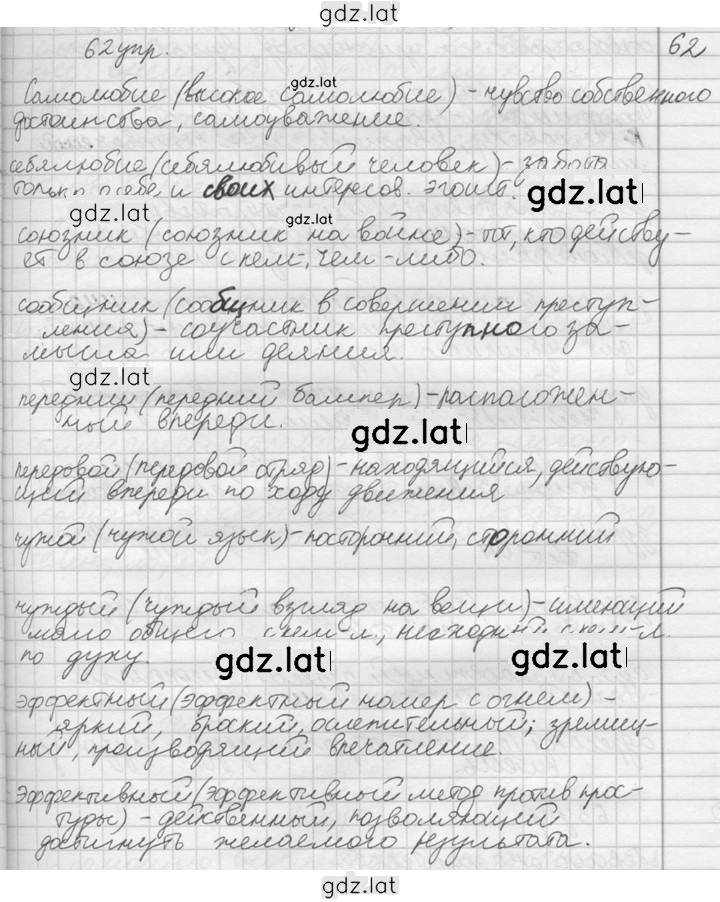 gdz.lat
62 упр. 62
gdz.lat
Самолюбие (высокое самолюбие) - чувство собственного
достоинства, самоуважение.
себялюбие (себялюбивый человек) - забота
только о себе и своих интересов. эгоист.
gdz.lat
gdz.lat
gdz.lat
союзник (союзник на войне) - тот, кто действу-
ет в союзе с кем-, чем-либо.
сообщник (сообщник в совершении преступ-
ления) - соучастник преступного за-
мысла или деяния.
gdz.lat
передний (передний бампер) - расположен-
ный впереди.
gdz.lat
передовой (передовой отряд) - находящийся, действую-
щий впереди по ходу движения
чужой (чужой язык) - посторонний, сторонний
чуждый (чуждый взгляд на вещи) - имеющий
мало общего с кем-л., несходный с кем-л.
по духу.
gdz.lat
gdz.lat
эффектный (эффектный номер с огнем) -
яркий, броский, ослепительный; зрелищ-
ный, производящий впечатление.
Эффективный (эффективный метод против прос-
туды) - действенный, позволяющий
достигнуть желаемого результата.
gdz.lat